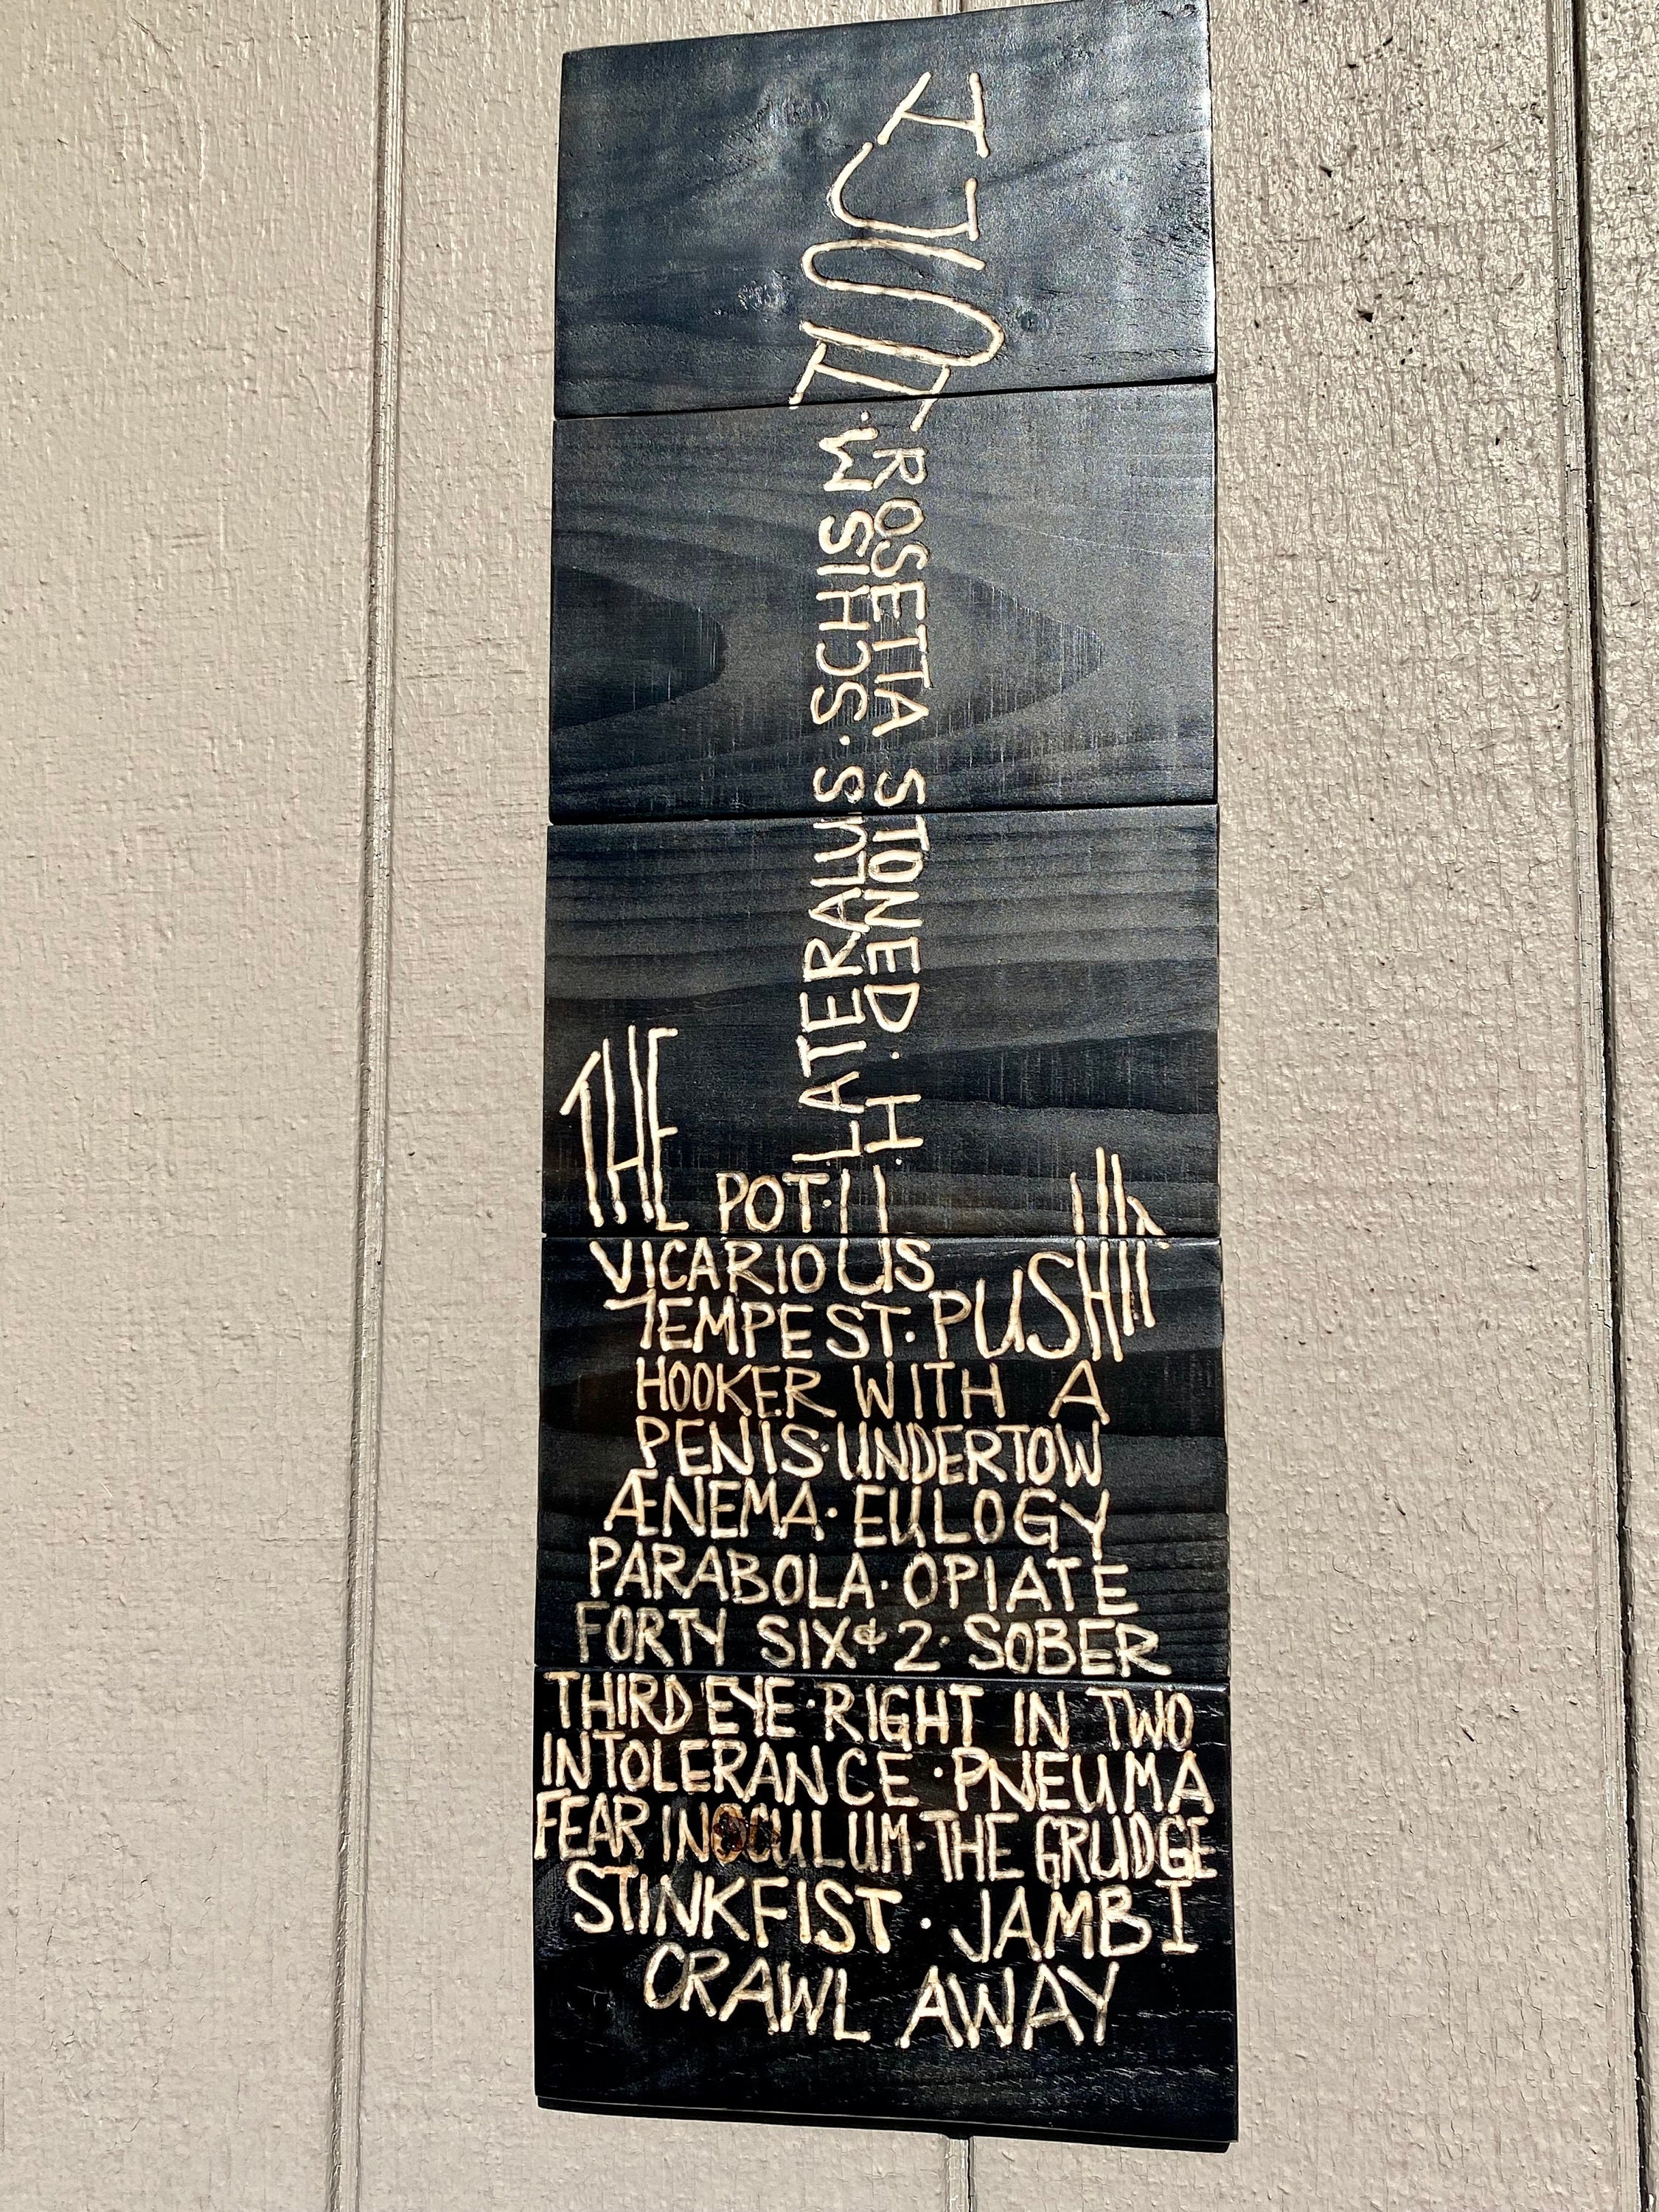 LATERALUS · SCHISM ·
ROSETTA STONED · H ·
THE POT ·
VICARIOUS
TEMPEST · PUSHIT
HOOKER WITH A
PENIS · UNDERTOW
ÆNEMA · EULOGY
PARABOLA · OPIATE
FORTY SIX & 2 · SOBER
THIRD EYE · RIGHT IN TWO
INTOLERANCE · PNEUMA
FEAR INOCULUM · THE GRUDGE
STINKFIST · JAMBI
CRAWL AWAY